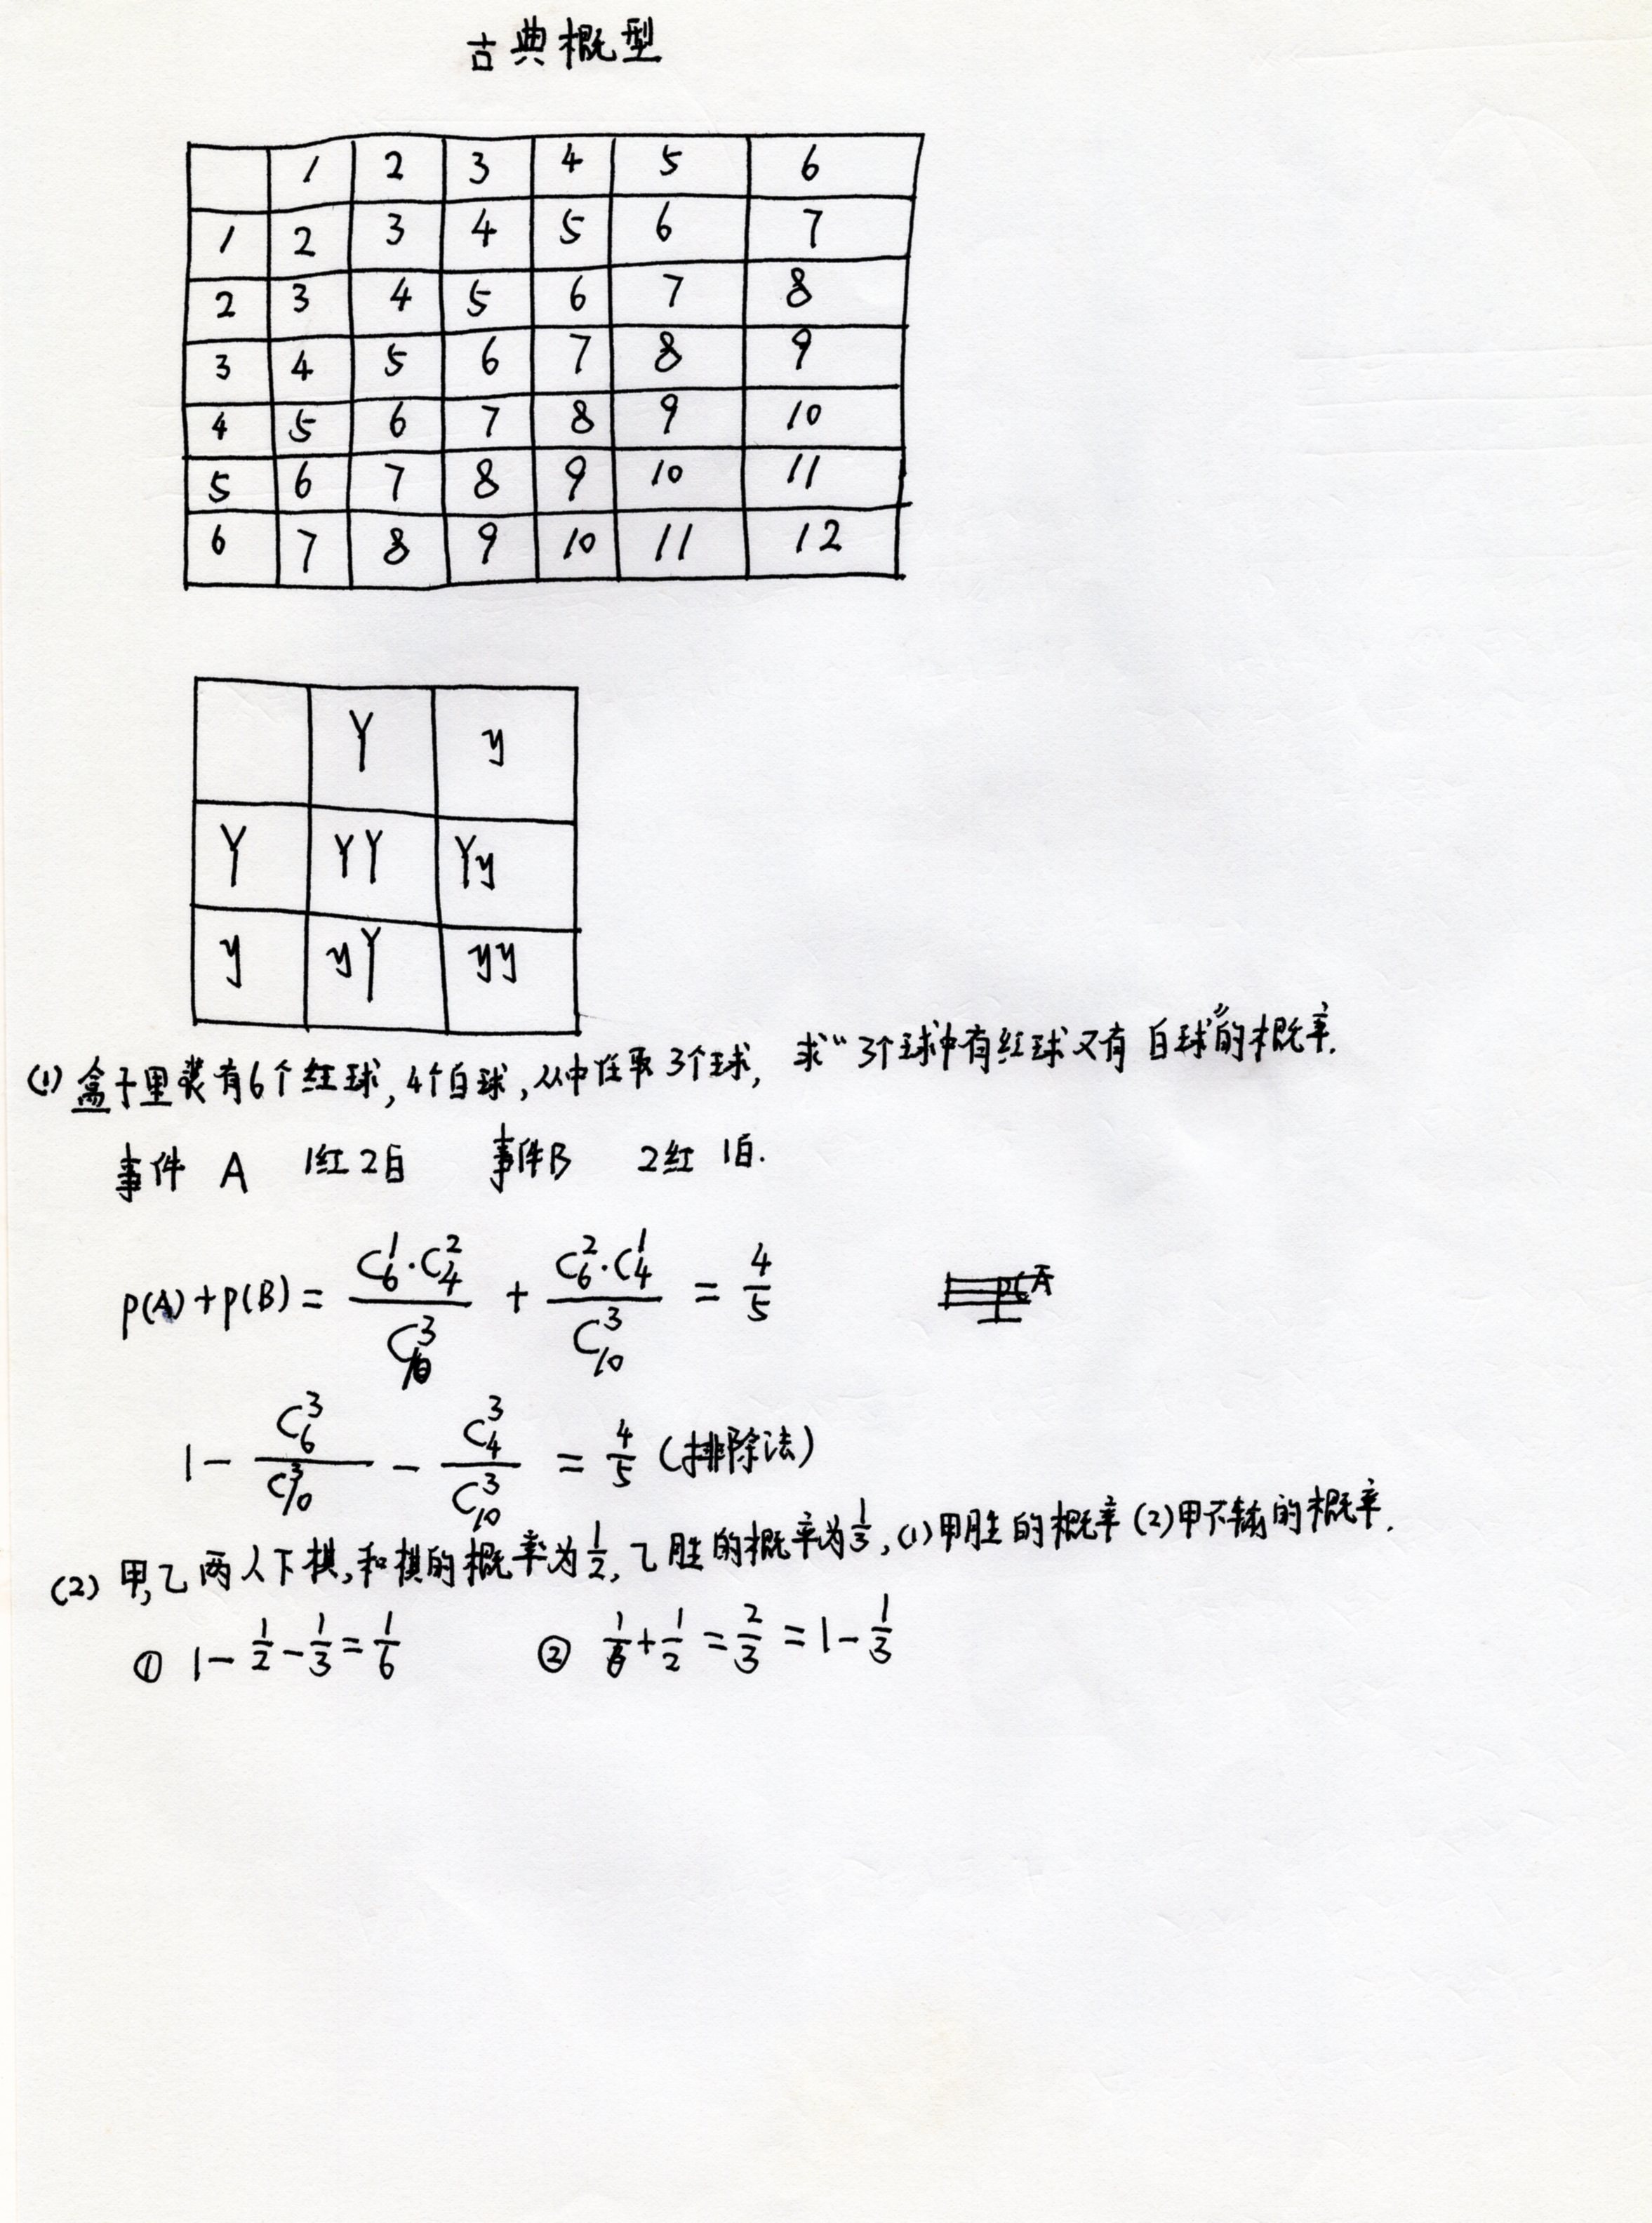 古典概型
1 2 3 4 5 6
1 2 3 4 5 6 7
2 3 4 5 6 7 8
3 4 5 6 7 8 9
4 5 6 7 8 9 10
5 6 7 8 9 10 11
6 7 8 9 10 11 12
Y y
Y YY Yy
y yY yy
(1) 盒子里装有6个红球,4个白球,从中任取3个球, 求“3个球中有红球又有白球”的概率.
事件 A 1红2白 事件B 2红 1白.
p(A)+p(B) = \frac{C_6^1·C_4^2}{C_{10}^3} + \frac{C_6^2·C_4^1}{C_{10}^3} = \frac{4}{5}
1 - \frac{C_6^3}{C_{10}^3} - \frac{C_4^3}{C_{10}^3} = \frac{4}{5} (排除法)
(2) 甲,乙两人下棋,和棋的概率为\frac{1}{2},乙胜的概率为\frac{1}{3},(1)甲胜的概率(2)甲不输的概率.
① 1-\frac{1}{2}-\frac{1}{3}=\frac{1}{6} ② \frac{1}{6}+\frac{1}{2}=\frac{2}{3}=1-\frac{1}{3}